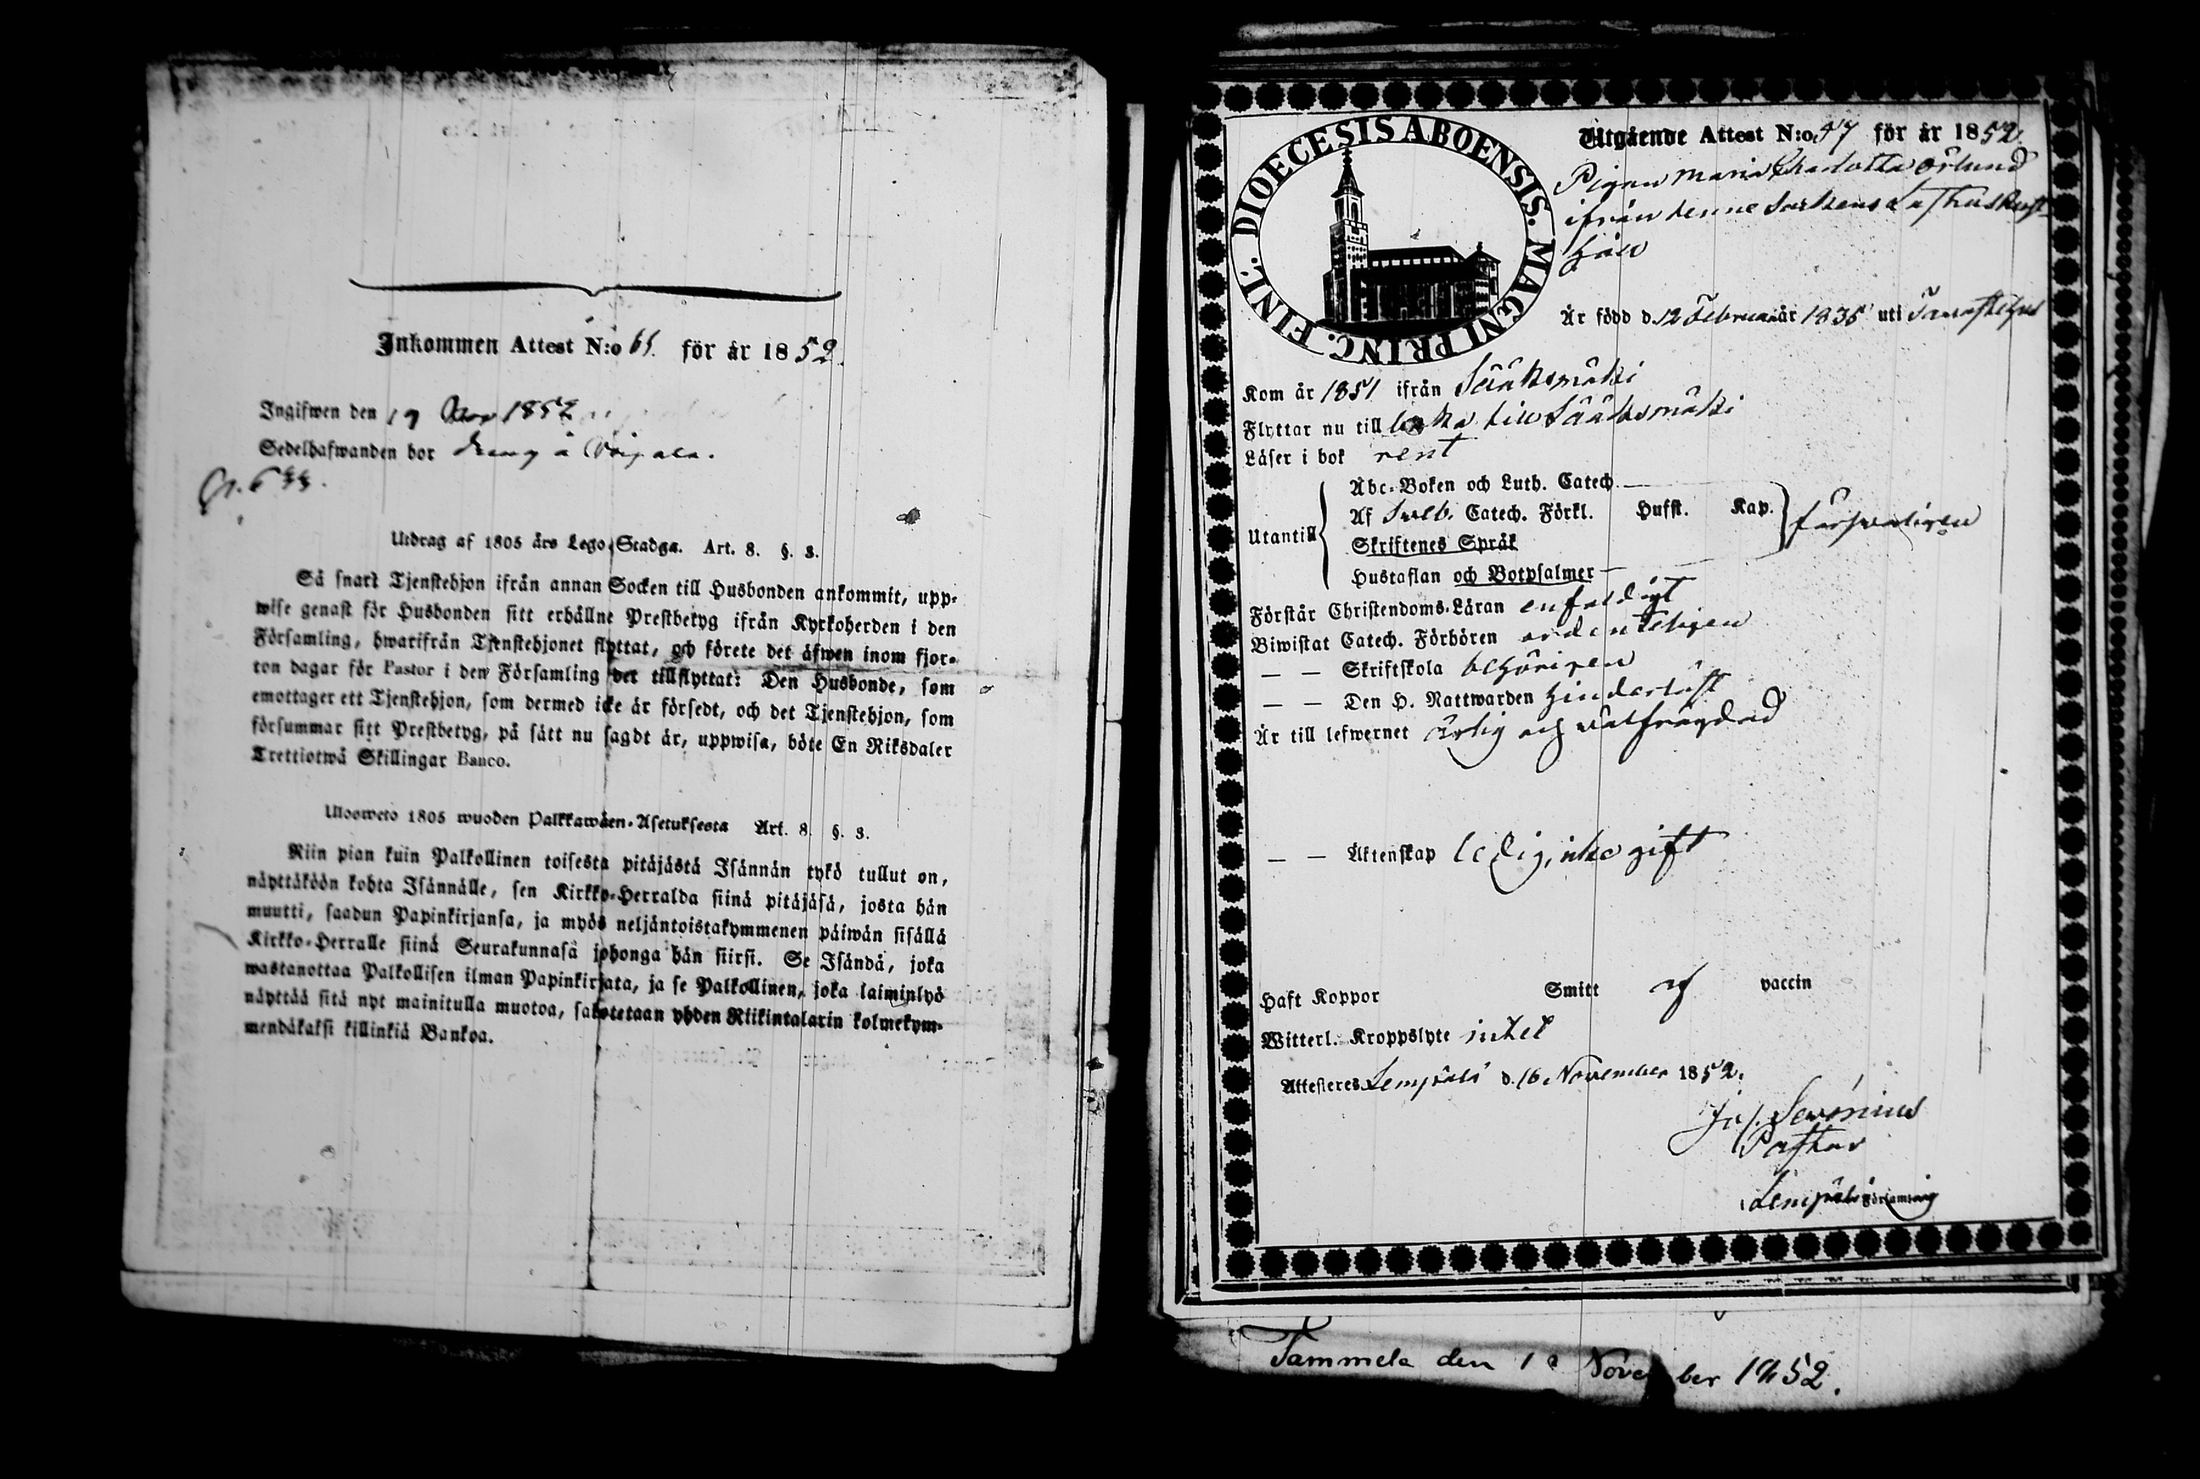 Inkommen Attest N:o 65. för år 1852.
Ingifwen den 19 Nov 1852
Sedelhafwanden bor dräng å
Utdrag af 1805 års Lego-Stadga. Art. 8. §. 3.
Så snart Tjenstehjon ifrån annan Socken till Husbonden ankommit, upp-
wise genast för Husbonden sitt erhållne Prestbetyg ifrån Kyrkoherden i den
Församling, hwarifrån Tjenstehjonet flyttat, och förete det äfwen inom fjor-
ton dagar för Pastor i den Församling det tillflyttat: Den Husbonde, som
emottager ett Tjenstehjon, som dermed icke är försedt, och det Tjenstehjon, som
försummar sitt Prestbetyg, på sätt nu sagdt är, uppwisa, böte En Riksdaler
Trettiotwå Skillingar Banco.
Uloosweto 1805 wuoden Palkkawäen-Asetuksesta Art. 8. §. 3.
Niin pian kuin Palkollinen toisesta pitäjästä Isännän tykö tullut on,
näyttäköön kohta Isännälle, sen Kirkko-Herralda siinä pitäjäsä, josta hän
muutti, saadun Papinkirjansa, ja myös neljäntoistakymmenen päiwän sisällä
Kirkko-Herralle siinä Seurakunnasa johonga hän siirsi. Se Isändä, joka
wastanottaa Palkollisen ilman Papinkirjata, ja se Palkollinen, joka laiminlyö
näyttää sitä nyt mainitulla muotoa, sakotetaan yhden Riikintalarin kolmekym-
mendäkaksi killinkiä Bankoa.
DIOECESIS ABOENSIS. MAGNI PRINC. FINL.
Utgående Attest N:o 47 för år 1852.
Pigan Maria Charlotta Örlund
ifrån denne Sockens
Är född d. 12 Februari år 1835 uti Tavastehus
Kom år 1851 ifrån Sääksmäki
Flyttar nu till baka till Sääksmäki
Läser i bok rent
Utantill
Abc-Boken och Luth. Catech.
Af Sveb. Catech. Förkl. Hufst. Kap.
försvarligen
Skriftenes Språk
Hustaflan och Botpsalmer
Förstår Christendoms-Läran enfaldigt
Biwistat Catech. Förhören ordenteligen
— — Skriftskola behörigen
— — Den H. Nattwarden hinderlöst
Är till lefwernet ärlig och välfrägdad
— — Äktenskap ledig, icke gift
Haft Koppor Smitt af vaccin
Witterl. Kroppslyte intet
Attesteres Lempälä d. 16 November 1852.
Pastor
Lempälä Församling
Tammela den 1 November 1852.